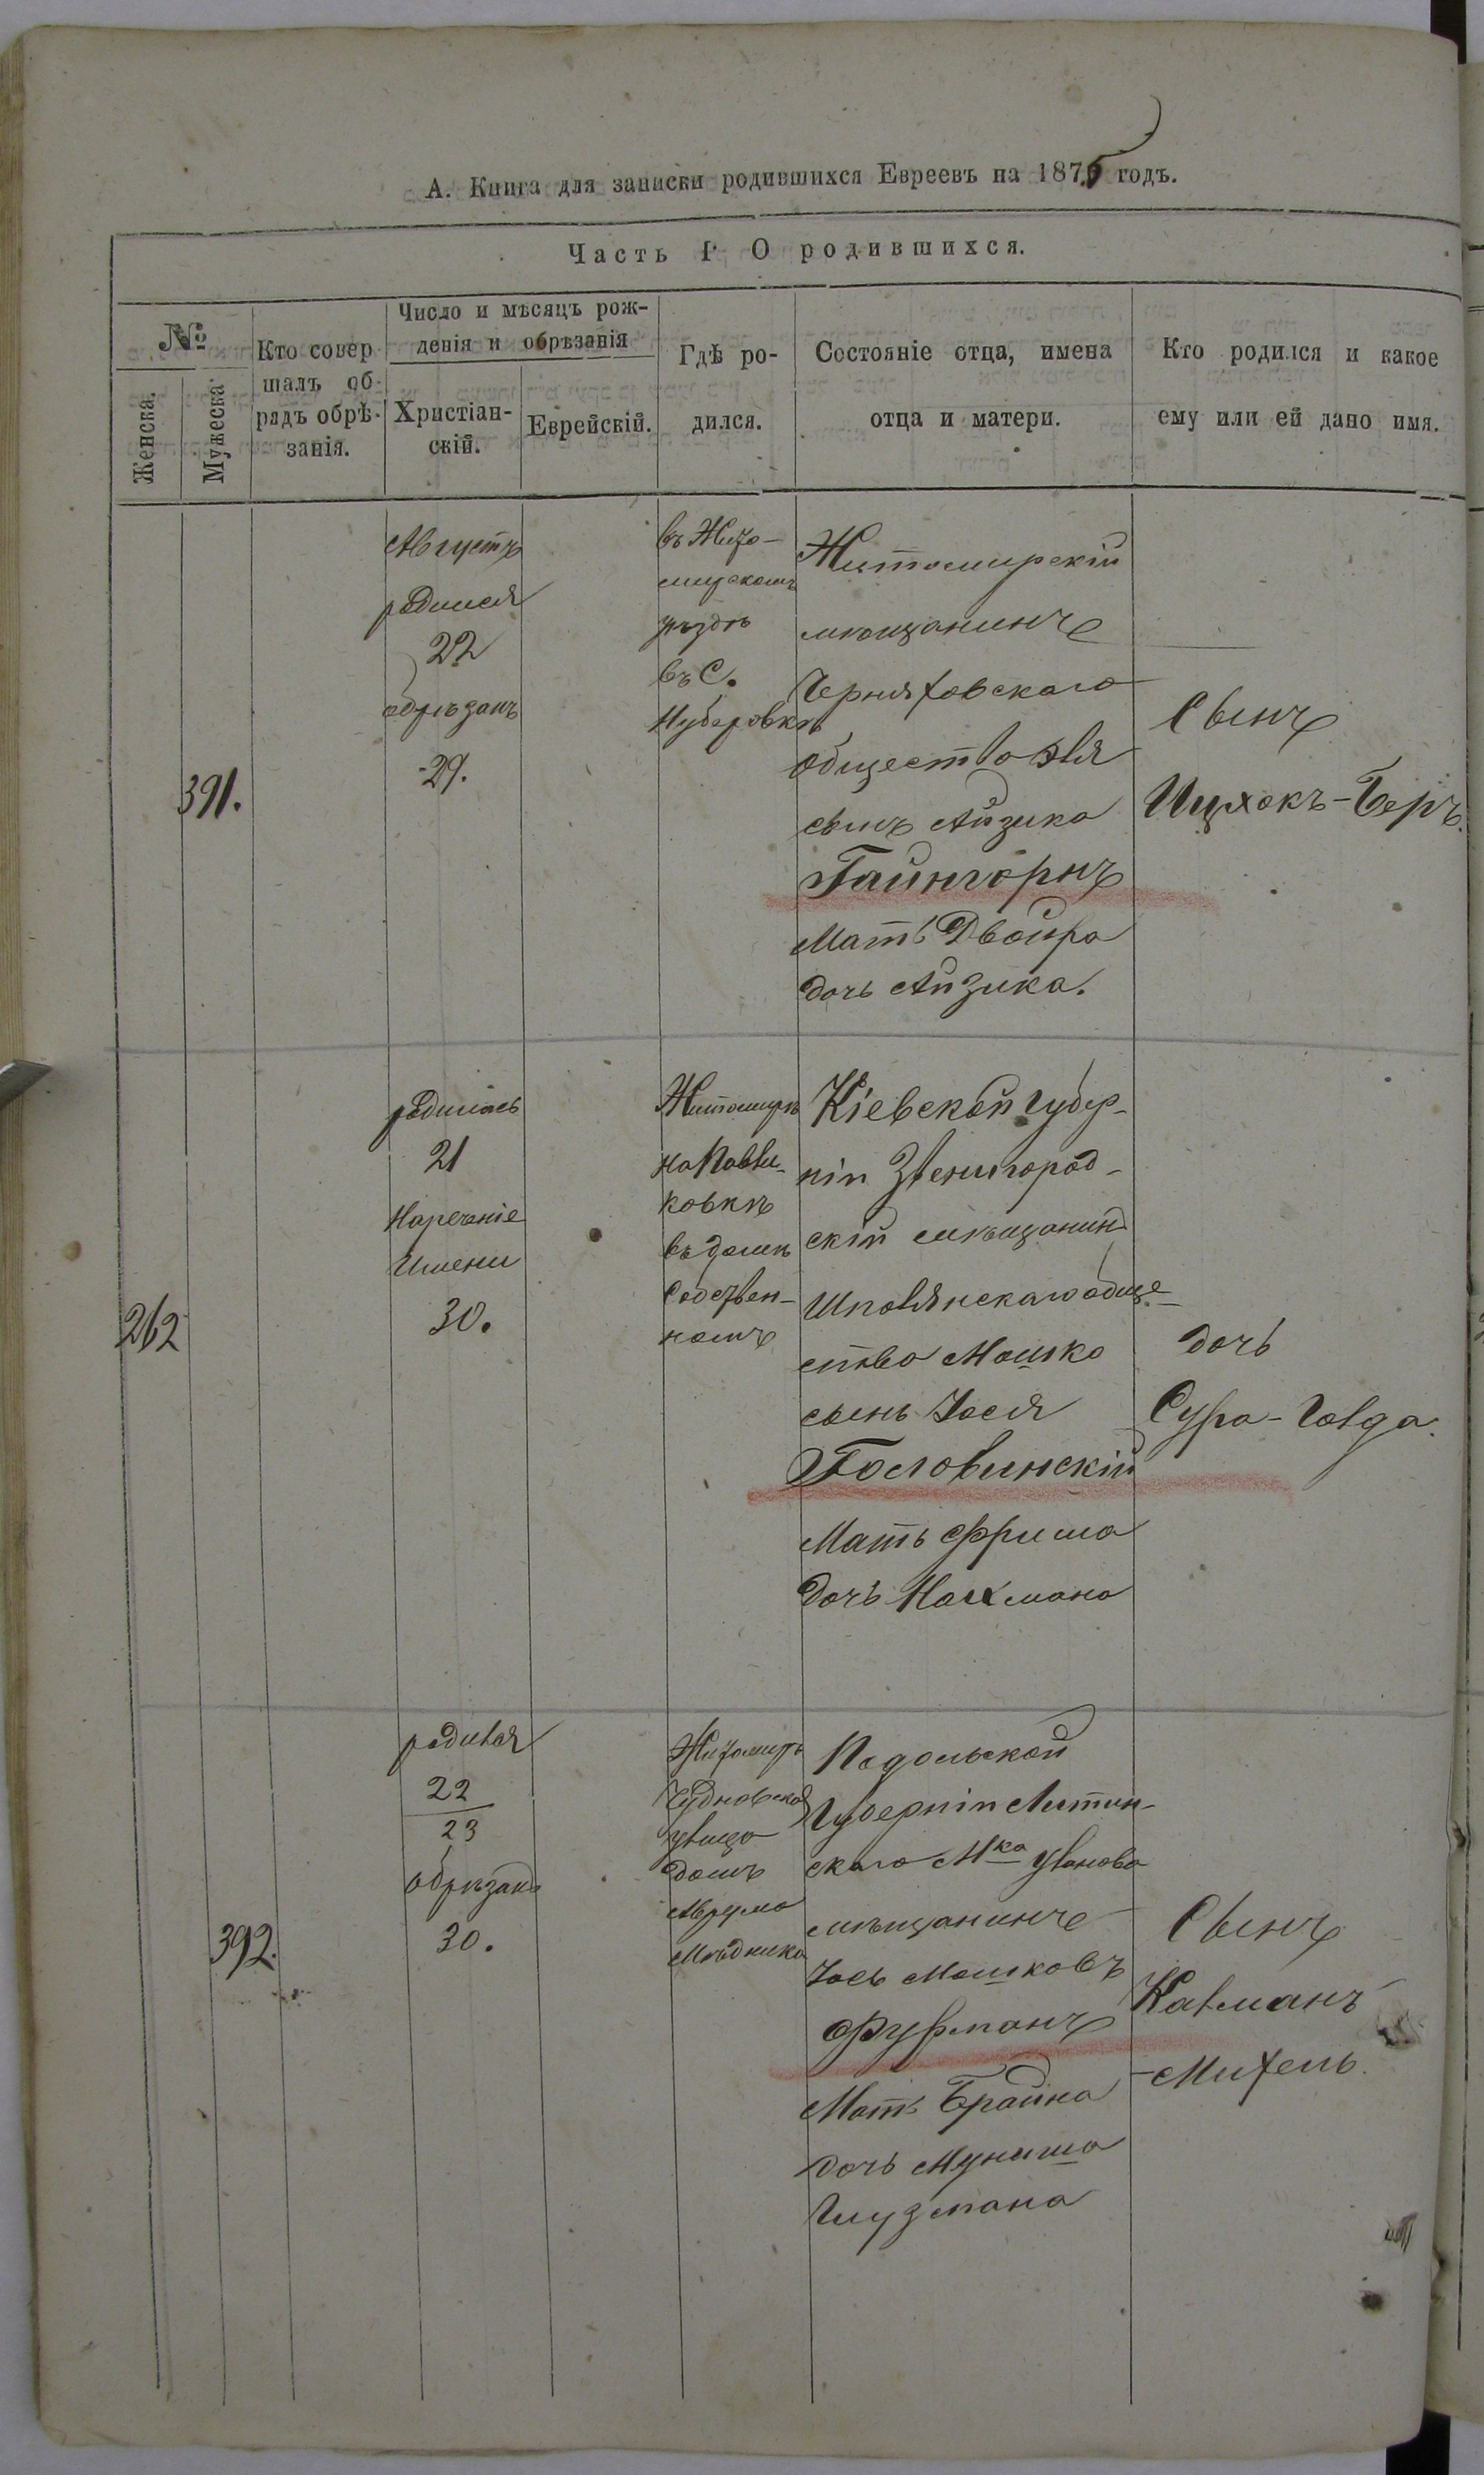 А. Книга для записки родившихся Евреевъ на 1875 годъ.
Часть I. О родившихся.
№
Женска.
Мужеска
Кто совер
шалъ об-
рядъ обрѣ-
занія.
Число и мѣсяцъ рож-
денія и обрѣзанія
Христіан-
скій.
Еврейскій.
Гдѣ ро-
дился.
Состояніе отца, имена
отца и матери.
Кто родился и какое
ему или ей дано имя.
391.
Августъ
родился
22
обрѣзанъ
29.
въ Жито-
мирскомъ
уѣздѣ
въ с.
Житомирскій
мѣщанинъ
Черняховскаго
общества Эля
сынъ Айзика
Гайнгорнъ
Мать Двойра
дочь Айзика.
Сынъ
Ицхокъ-Беръ.
262
родилась
21
Нареченіе
Имени
30.
Житомиръ
на Павли-
ковкѣ
въ домѣ
собствен-
номъ
Кіевской губер-
ніи Звенигород-
скій мѣщанинъ
Шполянскаго обще-
ства Мошко
сынъ Іося
Головинскій
Мать Фрима
дочь Нахмана
дочь
Сура-Голда.
392.
родился
22
23
обрѣзанъ
30.
Житомиръ
Чудновская
улица
домъ
Аврума
Мѣдника
Подольской
губерніи Литин-
скаго М-ка Уланова
мѣщанинъ
Іось Мошковъ
Фурманъ
Мать Брайна
дочь Муниша
Глузмана
Сынъ
Калманъ
-Михель.